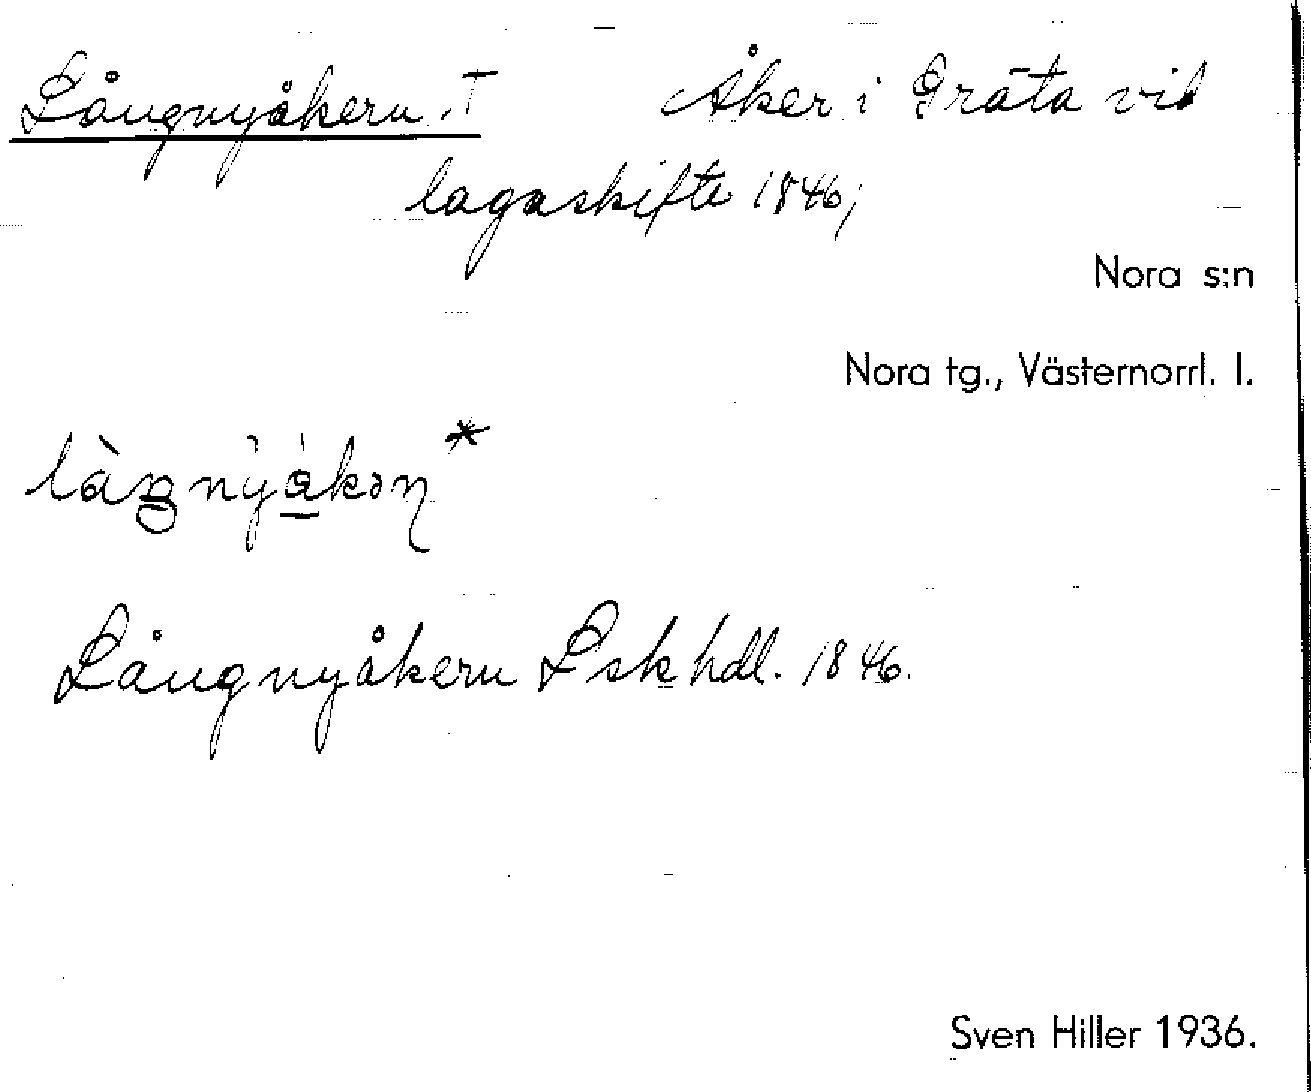 Långnyåkern. † Åker i Gräta vid
lagaskifte 1846;
Nora s:n
Nora tg., Västernorrl. l.
Långnyåkern Lskhdl. 1846.
Sven Hiller 1936.